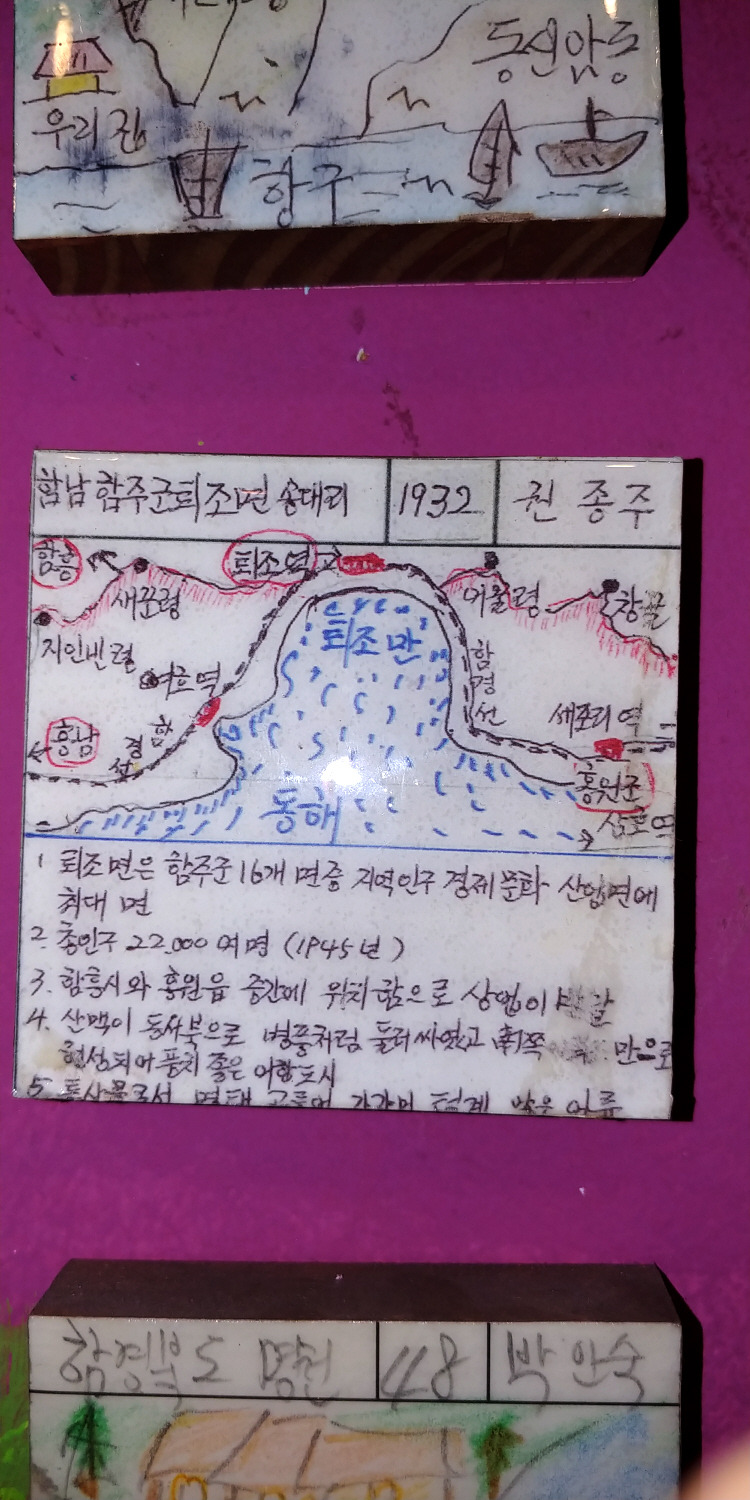 동신암동
우리집
항구
함남 함주군 퇴조면 송대리
1932
권종주
함흥
퇴조역
새꾼령
어울령
창꼴
지인빈령
퇴조만
여호역
함경선
세포리역
흥남
함경선
홍원군
동해
삼호역
1 퇴조면은 함주군 16개 면중 지역 인구 경제 문화 산업면에
최대 면
2. 총인구 22.000 여명 (1945년)
3. 함흥시와 홍원읍 중간에 위치함으로 상업이 발달
4. 산맥이 동서북으로 병풍처럼 둘러싸였고 南쪽 만으로
형성되어 풍치 좋은 어항도시
5. 특산물로선 명태 고등어 가자미 털게 많은 어류
함경북도 명천
48
박안숙